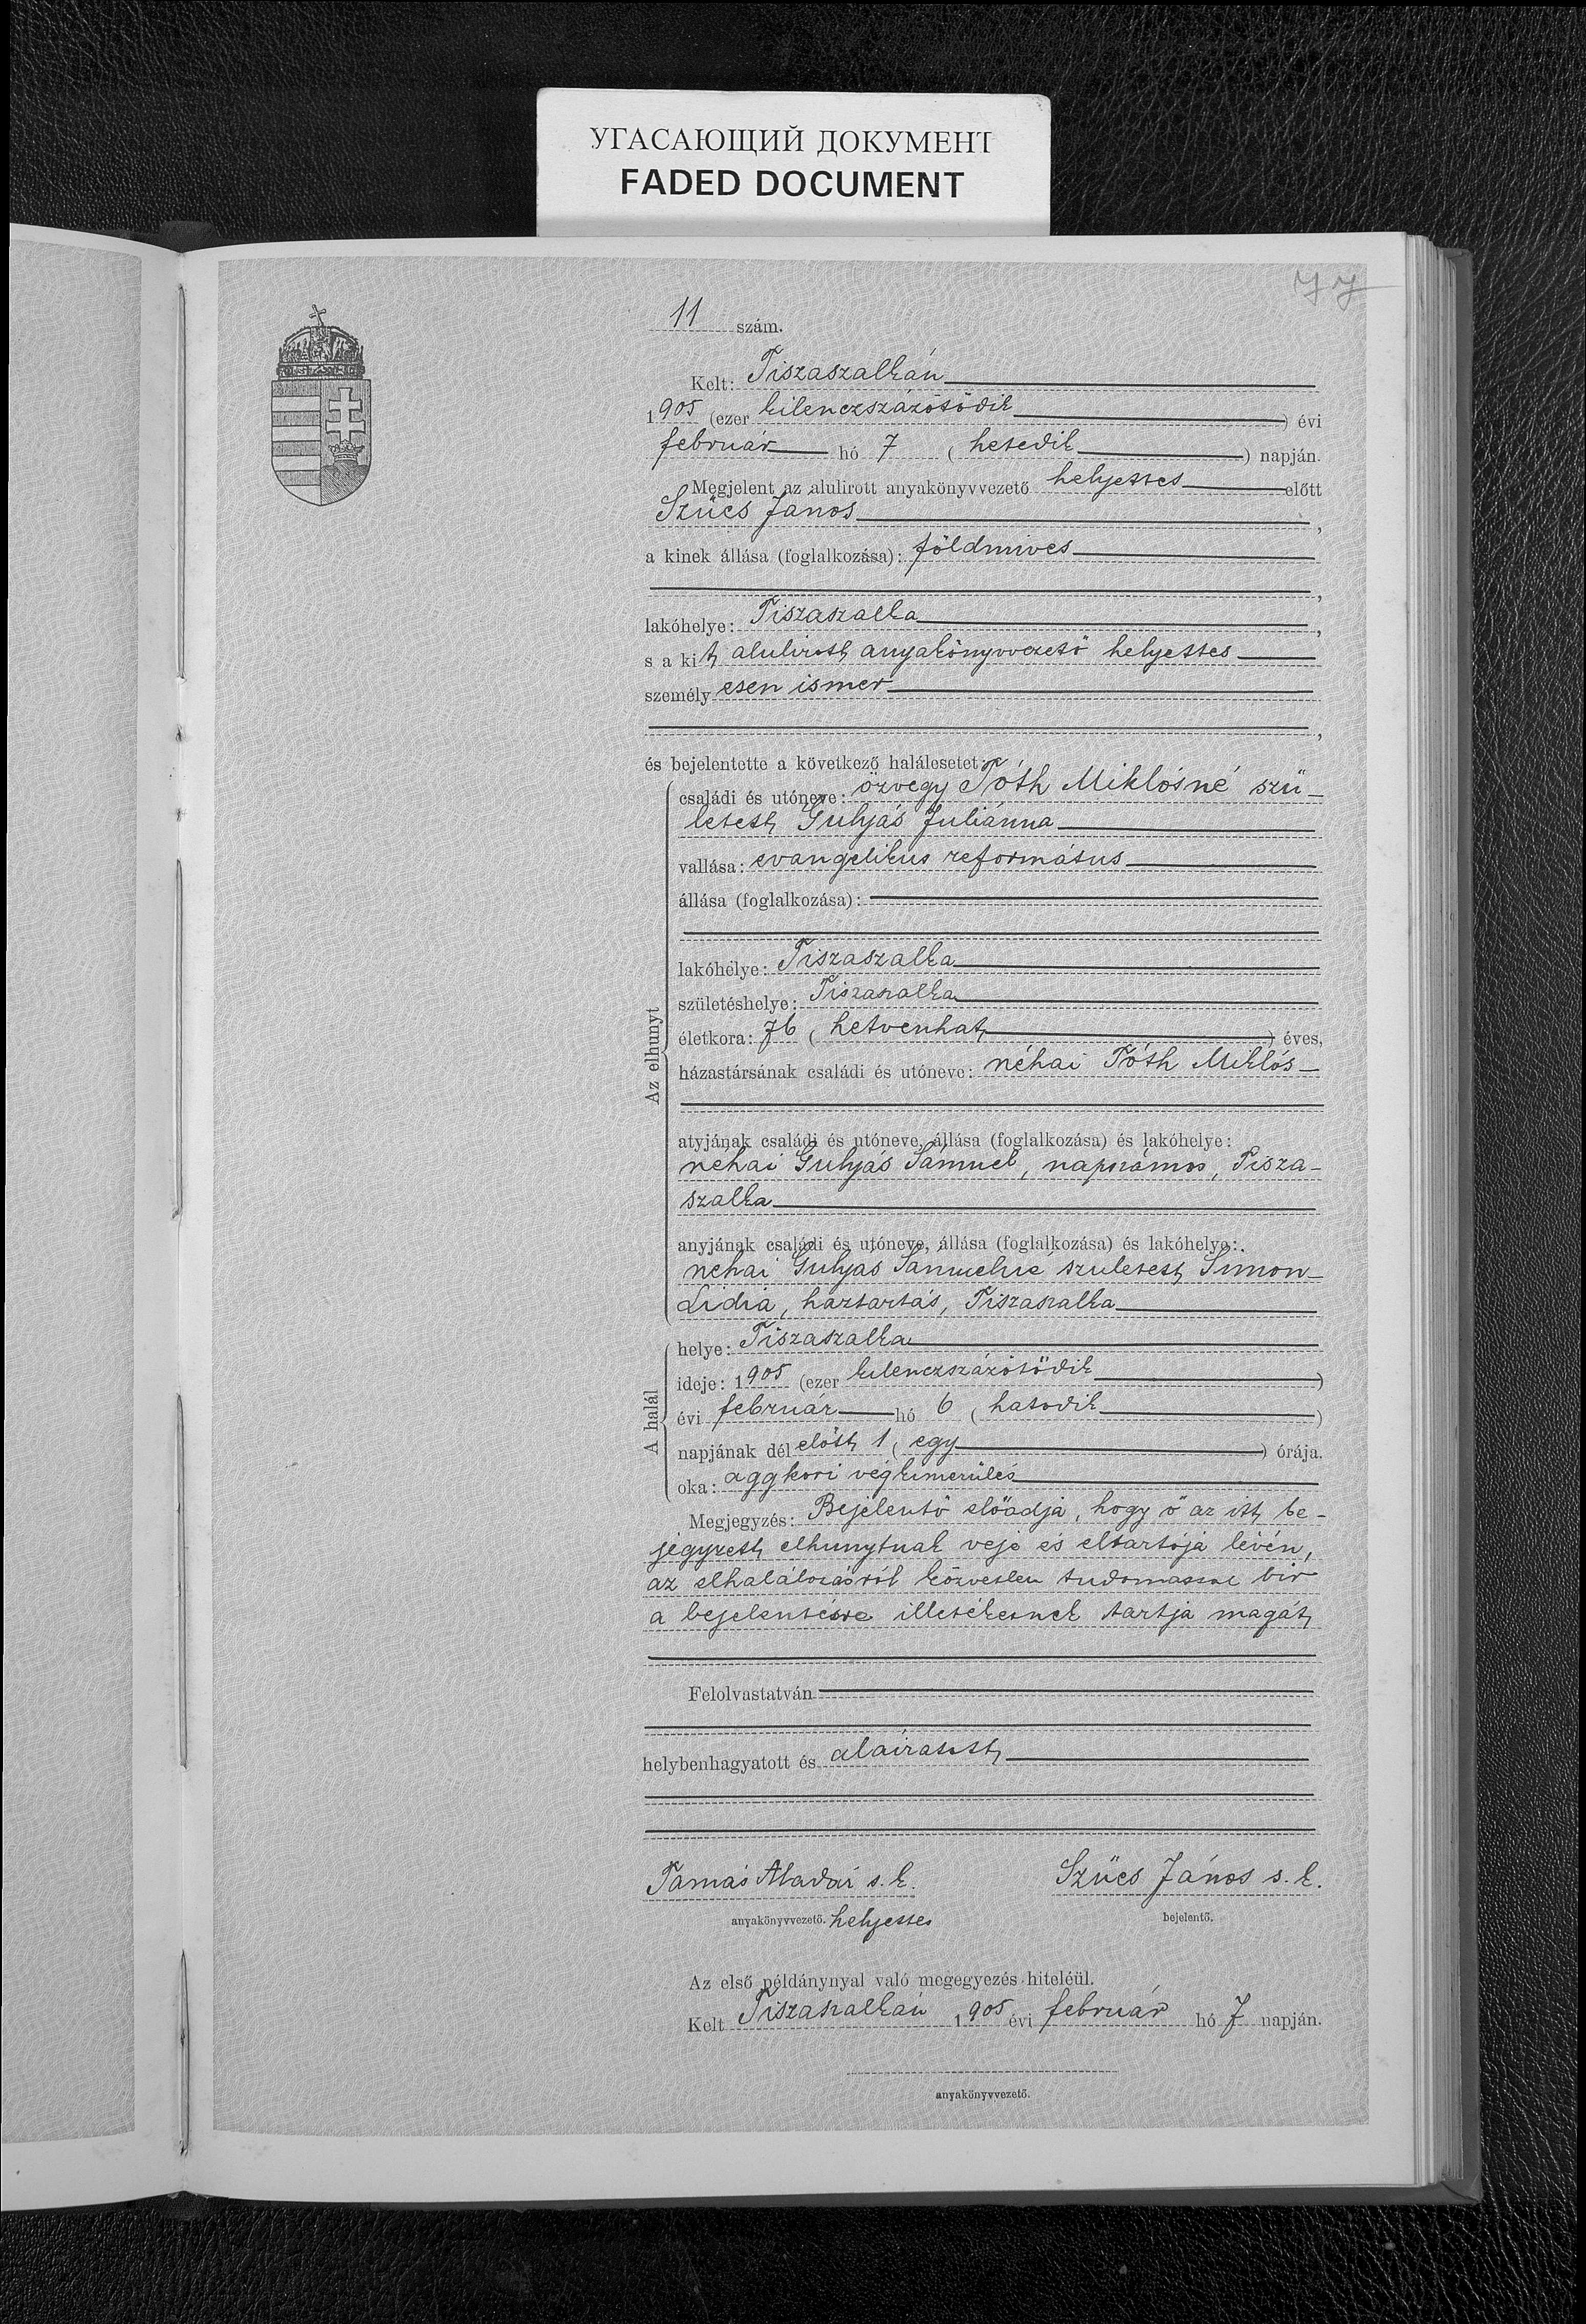 УГАСАЮЩИЙ ДОКУМЕНТ
FADED DOCUMENT
77
11 szám.
Kelt: Tiszaszalkán
1905 (ezer kilenczszázötödik) évi
február hó 7 (hetedik) napján.
Megjelent az alulirott anyakönyvvezető helyettes előtt
Szücs János,
a kinek állása (foglalkozása): földmives
,
lakóhelye: Tiszaszalka,
s a kit alulirott anyakönyvvezető helyettes
személyesen ismer
,
és bejelentette a következő halálesetet:
családi és utóneve: özvegy Tóth Miklósné szü-
letett Gulyás Juliánna
vallása: evangelikus református
állása (foglalkozása):
lakóhelye: Tiszaszalka
születéshelye: Tiszaszalka
életkora: 76 (hetvenhat) éves,
Az elhunyt
házastársának családi és utóneve: néhai Tóth Miklós
atyjának családi és utóneve, állása (foglalkozása) és lakóhelye:
néhai Gulyás Sámuel, napszámos, Tisza-
szalka
anyjának családi és utóneve, állása (foglalkozása) és lakóhelye:
néhai Gulyás Sámuelné született Simon
Lidia, háztartás, Tiszaszalka
helye: Tiszaszalka
ideje: 1905 (ezer kilenczszázötödik)
évi február hó 6 (hatodik)
A halál
napjának dél előtt 1 (egy) órája.
oka: aggkori végkimerülés
Megjegyzés: Bejelentő előadja, hogy ő az itt be-
jegyzett elhunytnak veje és eltartója lévén,
az elhalálozásról közvetlen tudomással bir
a bejelentésre illetékesnek tartja magát
Felolvastatván
helybenhagyatott és aláiratott
Tamás Aladár s. k. Szücs János s. k.
anyakönyvvezető. helyettes bejelentő.
Az első példánynyal való megegyezés hiteléül.
Kelt Tiszaszalkán 1905 évi február hó 7 napján.
anyakönyvvezető.